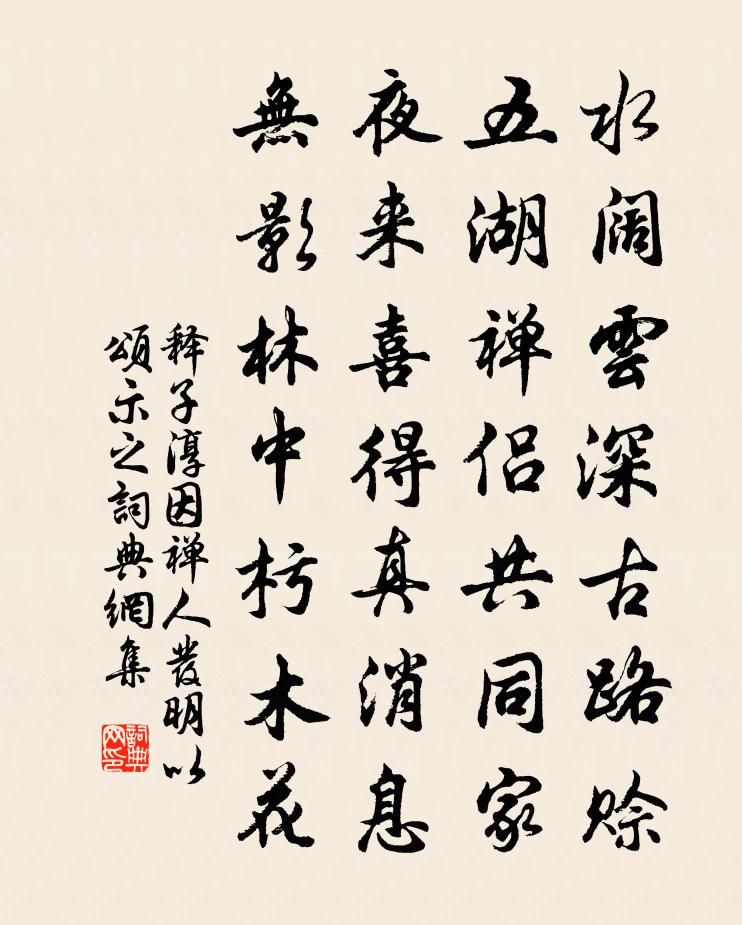 水阔雲深古路赊
五湖禅侣共同家
夜来喜得真消息
無影林中朽木花
释子淳因禅人發明以
頌示之詞典網集
詞典网印